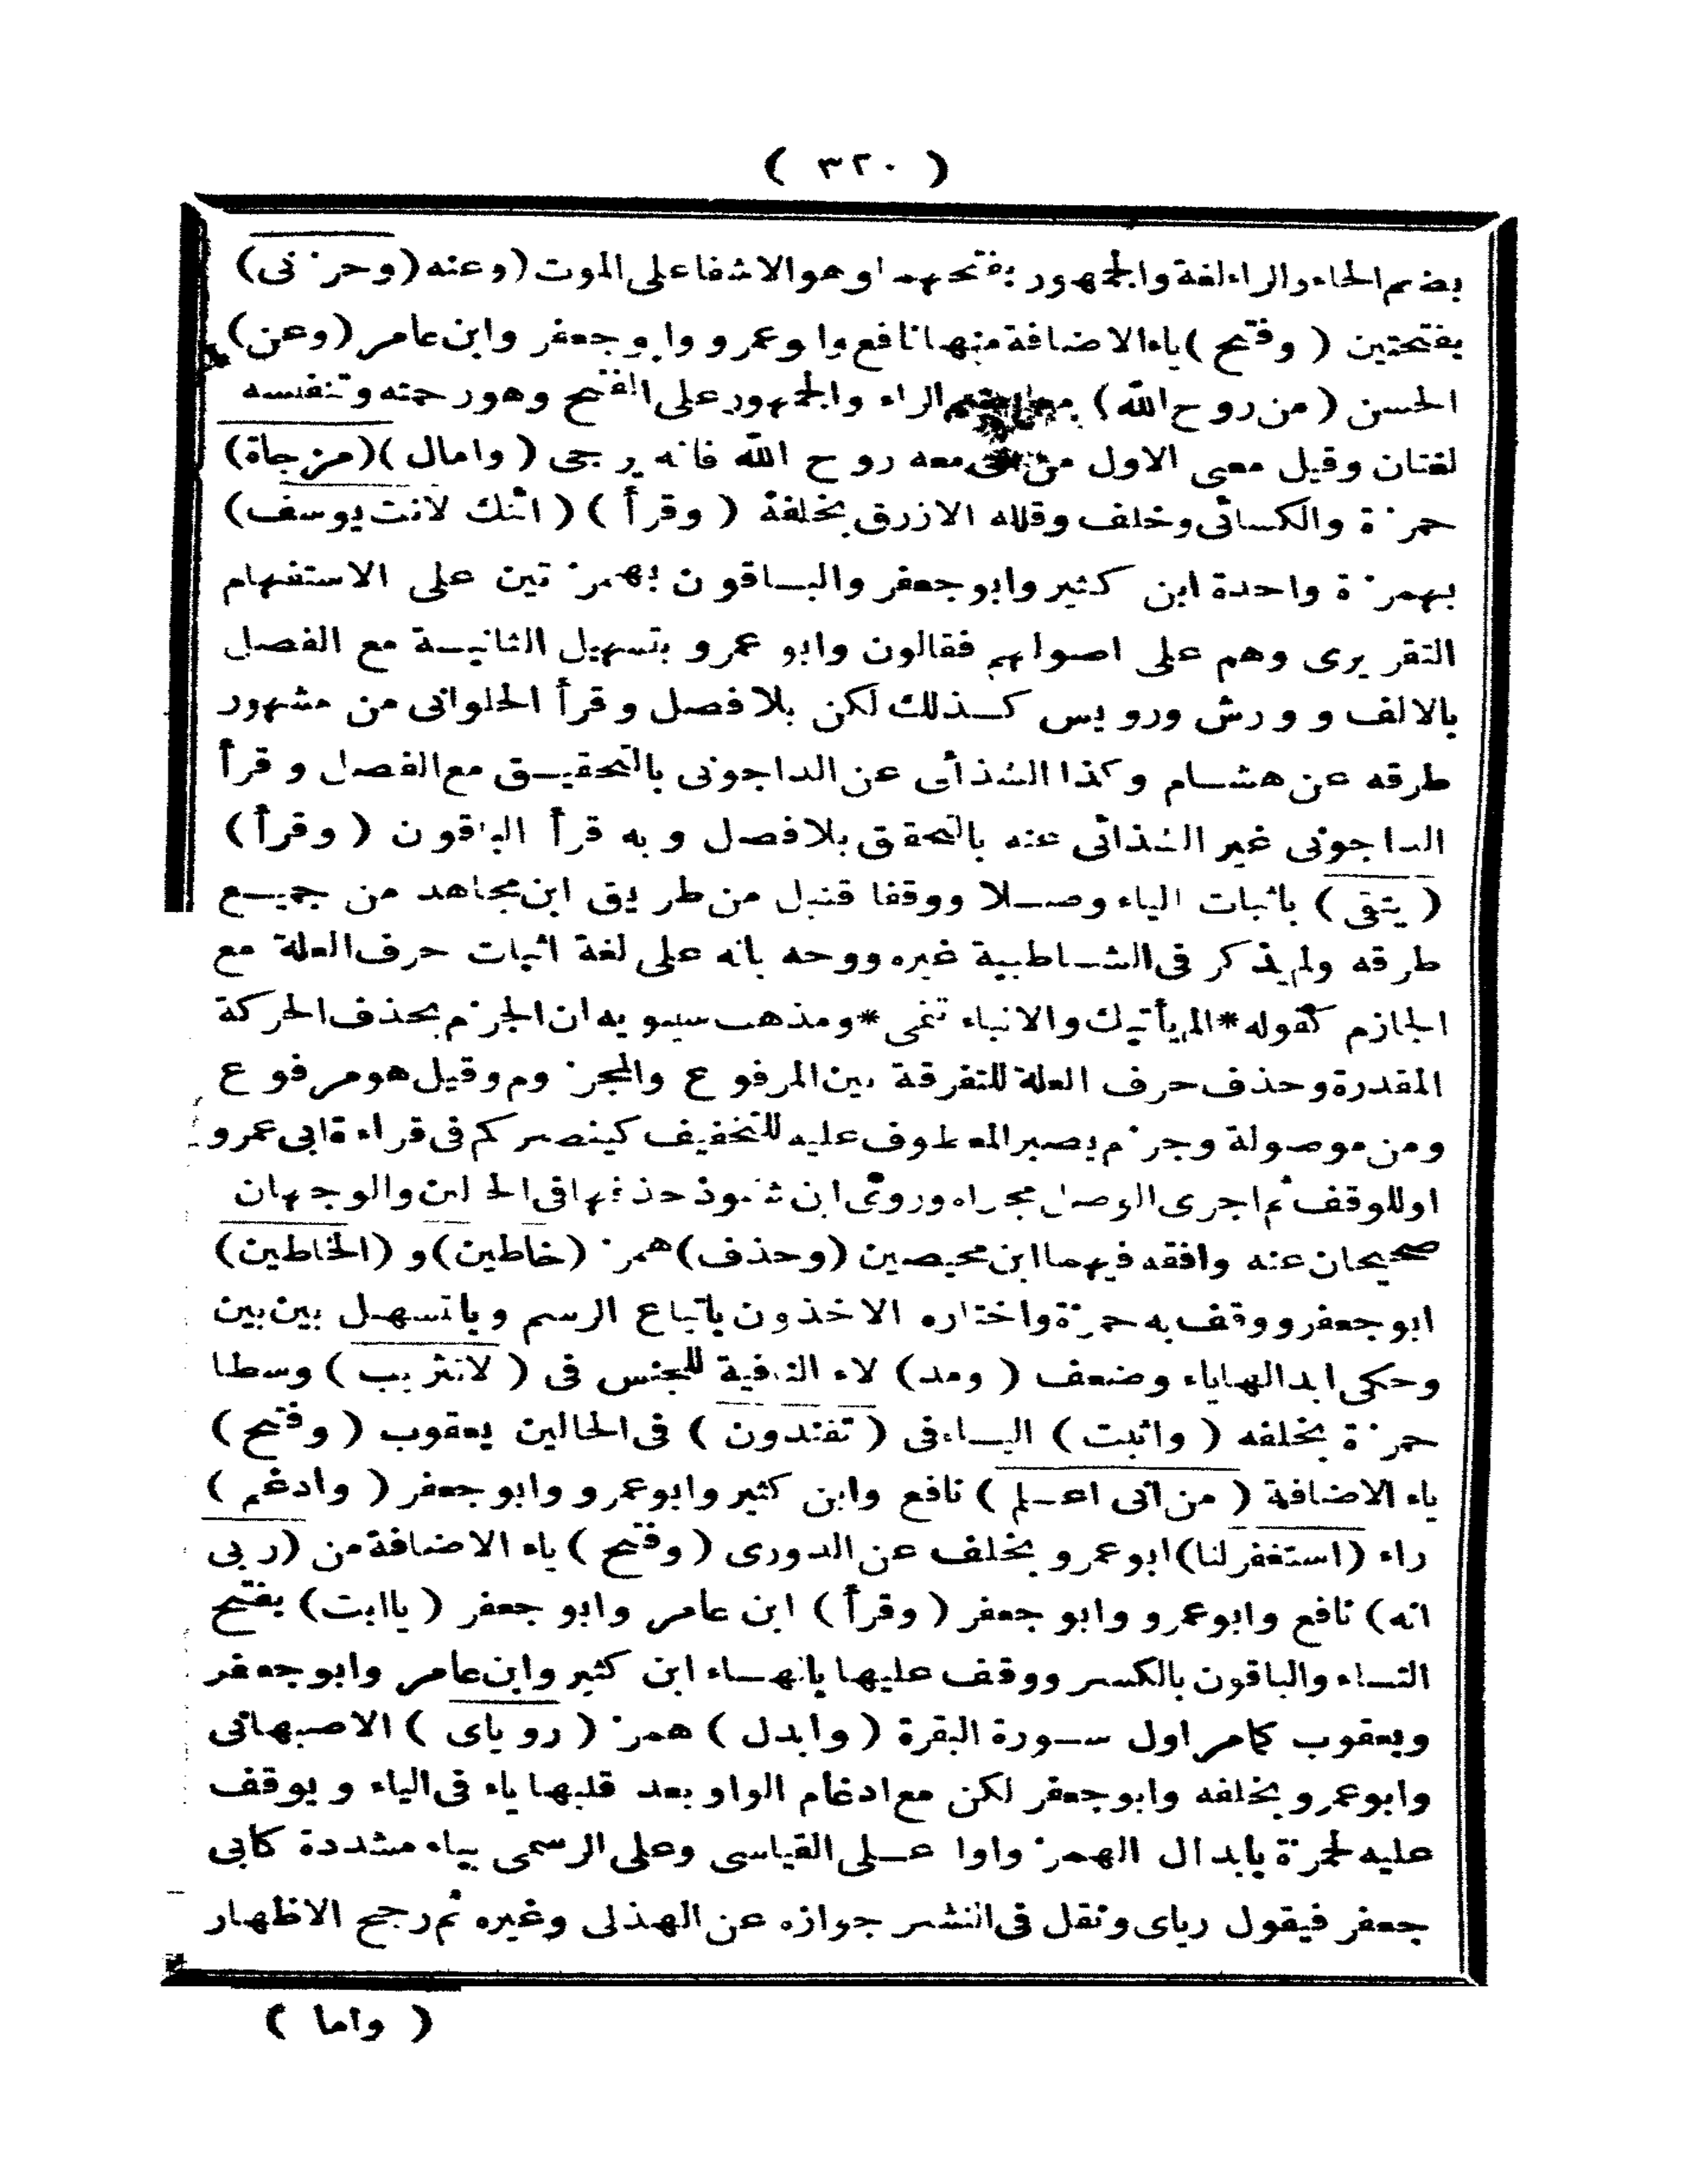 ( ٣٢٠ )
بضم الحاء والراء لغة والجمهور بفتحهما وهو الاشفاء على الموت (وعنه (وحزنى)
بفتحتين ( وفتح ) ياء الاضافة منها نافع وابو عمرو وابو جعفر وابن عامر (وعن)
الحسن (من روح الله) بضم الراء والجمهور على الفتح وهو رحمته وتنفيسه
لغتان وقيل معنى الاول من معه روح الله فانه يرجى ( وامال )(مزجاة)
حمزة والكسائى وخلف وقلله الازرق بخلفه ( وقرأ ) ( ائنك لانت يوسف)
بهمزة واحدة ابن كثير وابو جعفر والباقون بهمزتين على الاستفهام
التقريرى وهم على اصولهم فقالون وابو عمرو بتسهيل الثانية مع الفصل
بالالف و ورش ورويس كذلك لكن بلا فصل وقرأ الحلوانى من مشهور
طرقه عن هشام وكذا الشذائى عن الداجونى بالتحقيق مع الفصل وقرأ
الداجونى غير الشذائى عنه بالتحقق بلا فصل وبه قرأ الباقون ( وقرأ)
( يتقى ) باثبات الياء وصلا ووقفا قنبل من طريق ابن مجاهد من جميع
طرقه ولم يذكر فى الشاطبية غيره ووجه بانه على لغة اثبات حرف العلة مع
الجازم كقوله *الم يأتيك والانباء تنمى *ومذهب سيبويه ان الجزم بحذف الحركة
المقدرة وحذف حرف العلة للتفرقة بين المرفوع والمجزوم وقيل هو مرفوع
ومن موصولة وجزم يصبر المعطوف عليه للتخفيف كينصركم فى قراءة ابى عمرو
او للوقف ثم اجرى الوصل مجراه وروى ابن شنبوذ حذفها فى الحالين والوجهان
صحيحان عنه وافقه فيهما ابن محيصين (وحذف) همز (خاطين) و (الخاطين)
ابو جعفر ووقف به حمزة واختاره الاخذون باتباع الرسم وبالتسهيل بين بين
وحكى ابدالها ياء وضعف ( ومد) لاء النافية للجنس فى ( لا تثريب ) وسطا
حمزة بخلفه ( واثبت ) الياء فى ( تفندون ) فى الحالين يعقوب ( وفتح )
ياء الاضافة ( من انى اعلم ) نافع وابن كثير وابو عمرو وابو جعفر ( وادغم )
راء (استغفر لنا) ابو عمرو بخلف عن الدورى ( وفتح ) ياء الاضافة من (ربى
انه ) نافع وابو عمرو وابو جعفر ( وقرأ ) ابن عامر وابو جعفر ( ياابت) بفتح
التاء والباقون بالكسر ووقف عليها بالهاء ابن كثير وابن عامر وابو جعفر
ويعقوب كمامر اول سورة البقرة ( وابدل ) همز ( روياى ) الاصبهانى
وابو عمرو بخلفه وابو جعفر لكن مع ادغام الواو بعد قلبها ياء فى الياء ويوقف
عليه لحمزة بابدال الهمز واوا على القياسى وعلى الرسمى بياء مشددة كابى
جعفر فيقول رياى ونقل فى النشر جوازه عن الهذلى وغيره ثم رجح الاظهار
( واما )